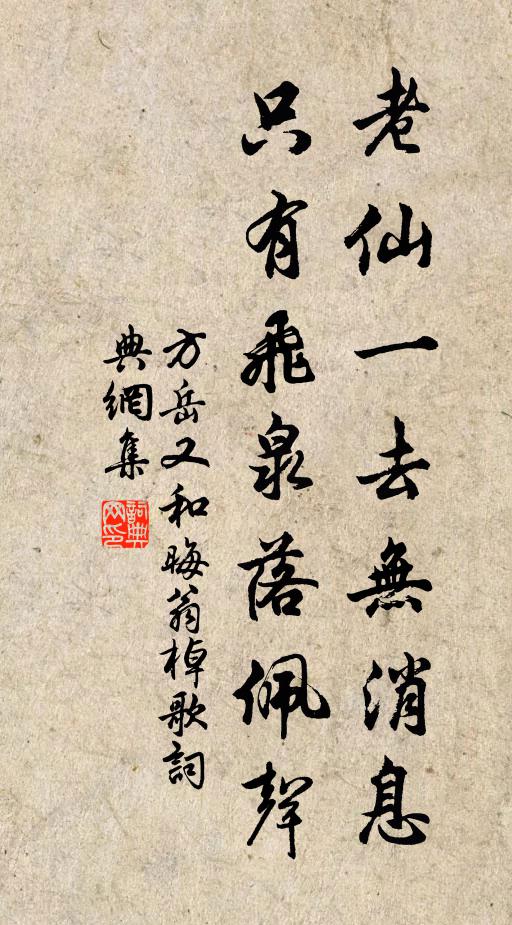 老仙一去無消息
只有飛泉落佩聲
方岳又和晦翁棹歌詞
典網集
詞典
网印